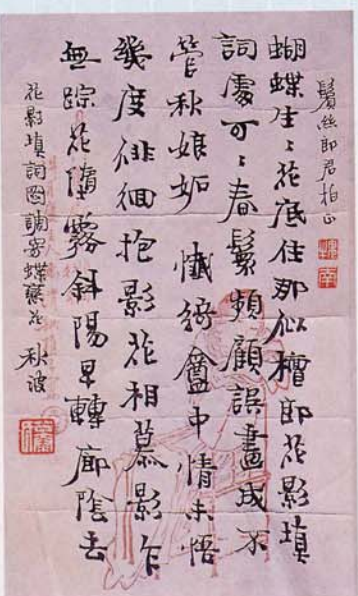 鬢絲郎君拍正
蝴蝶生〻花底住那似檀郎花影填
詞處可〻春鬟頻顧誤畫成不
管秋娘妬 懺綺龕中情未悟
幾度徘徊抱影花相慕影乍
無踪花墮霧斜陽早轉廊陰去
花影填詞圖調寄蝶戀花 秋波